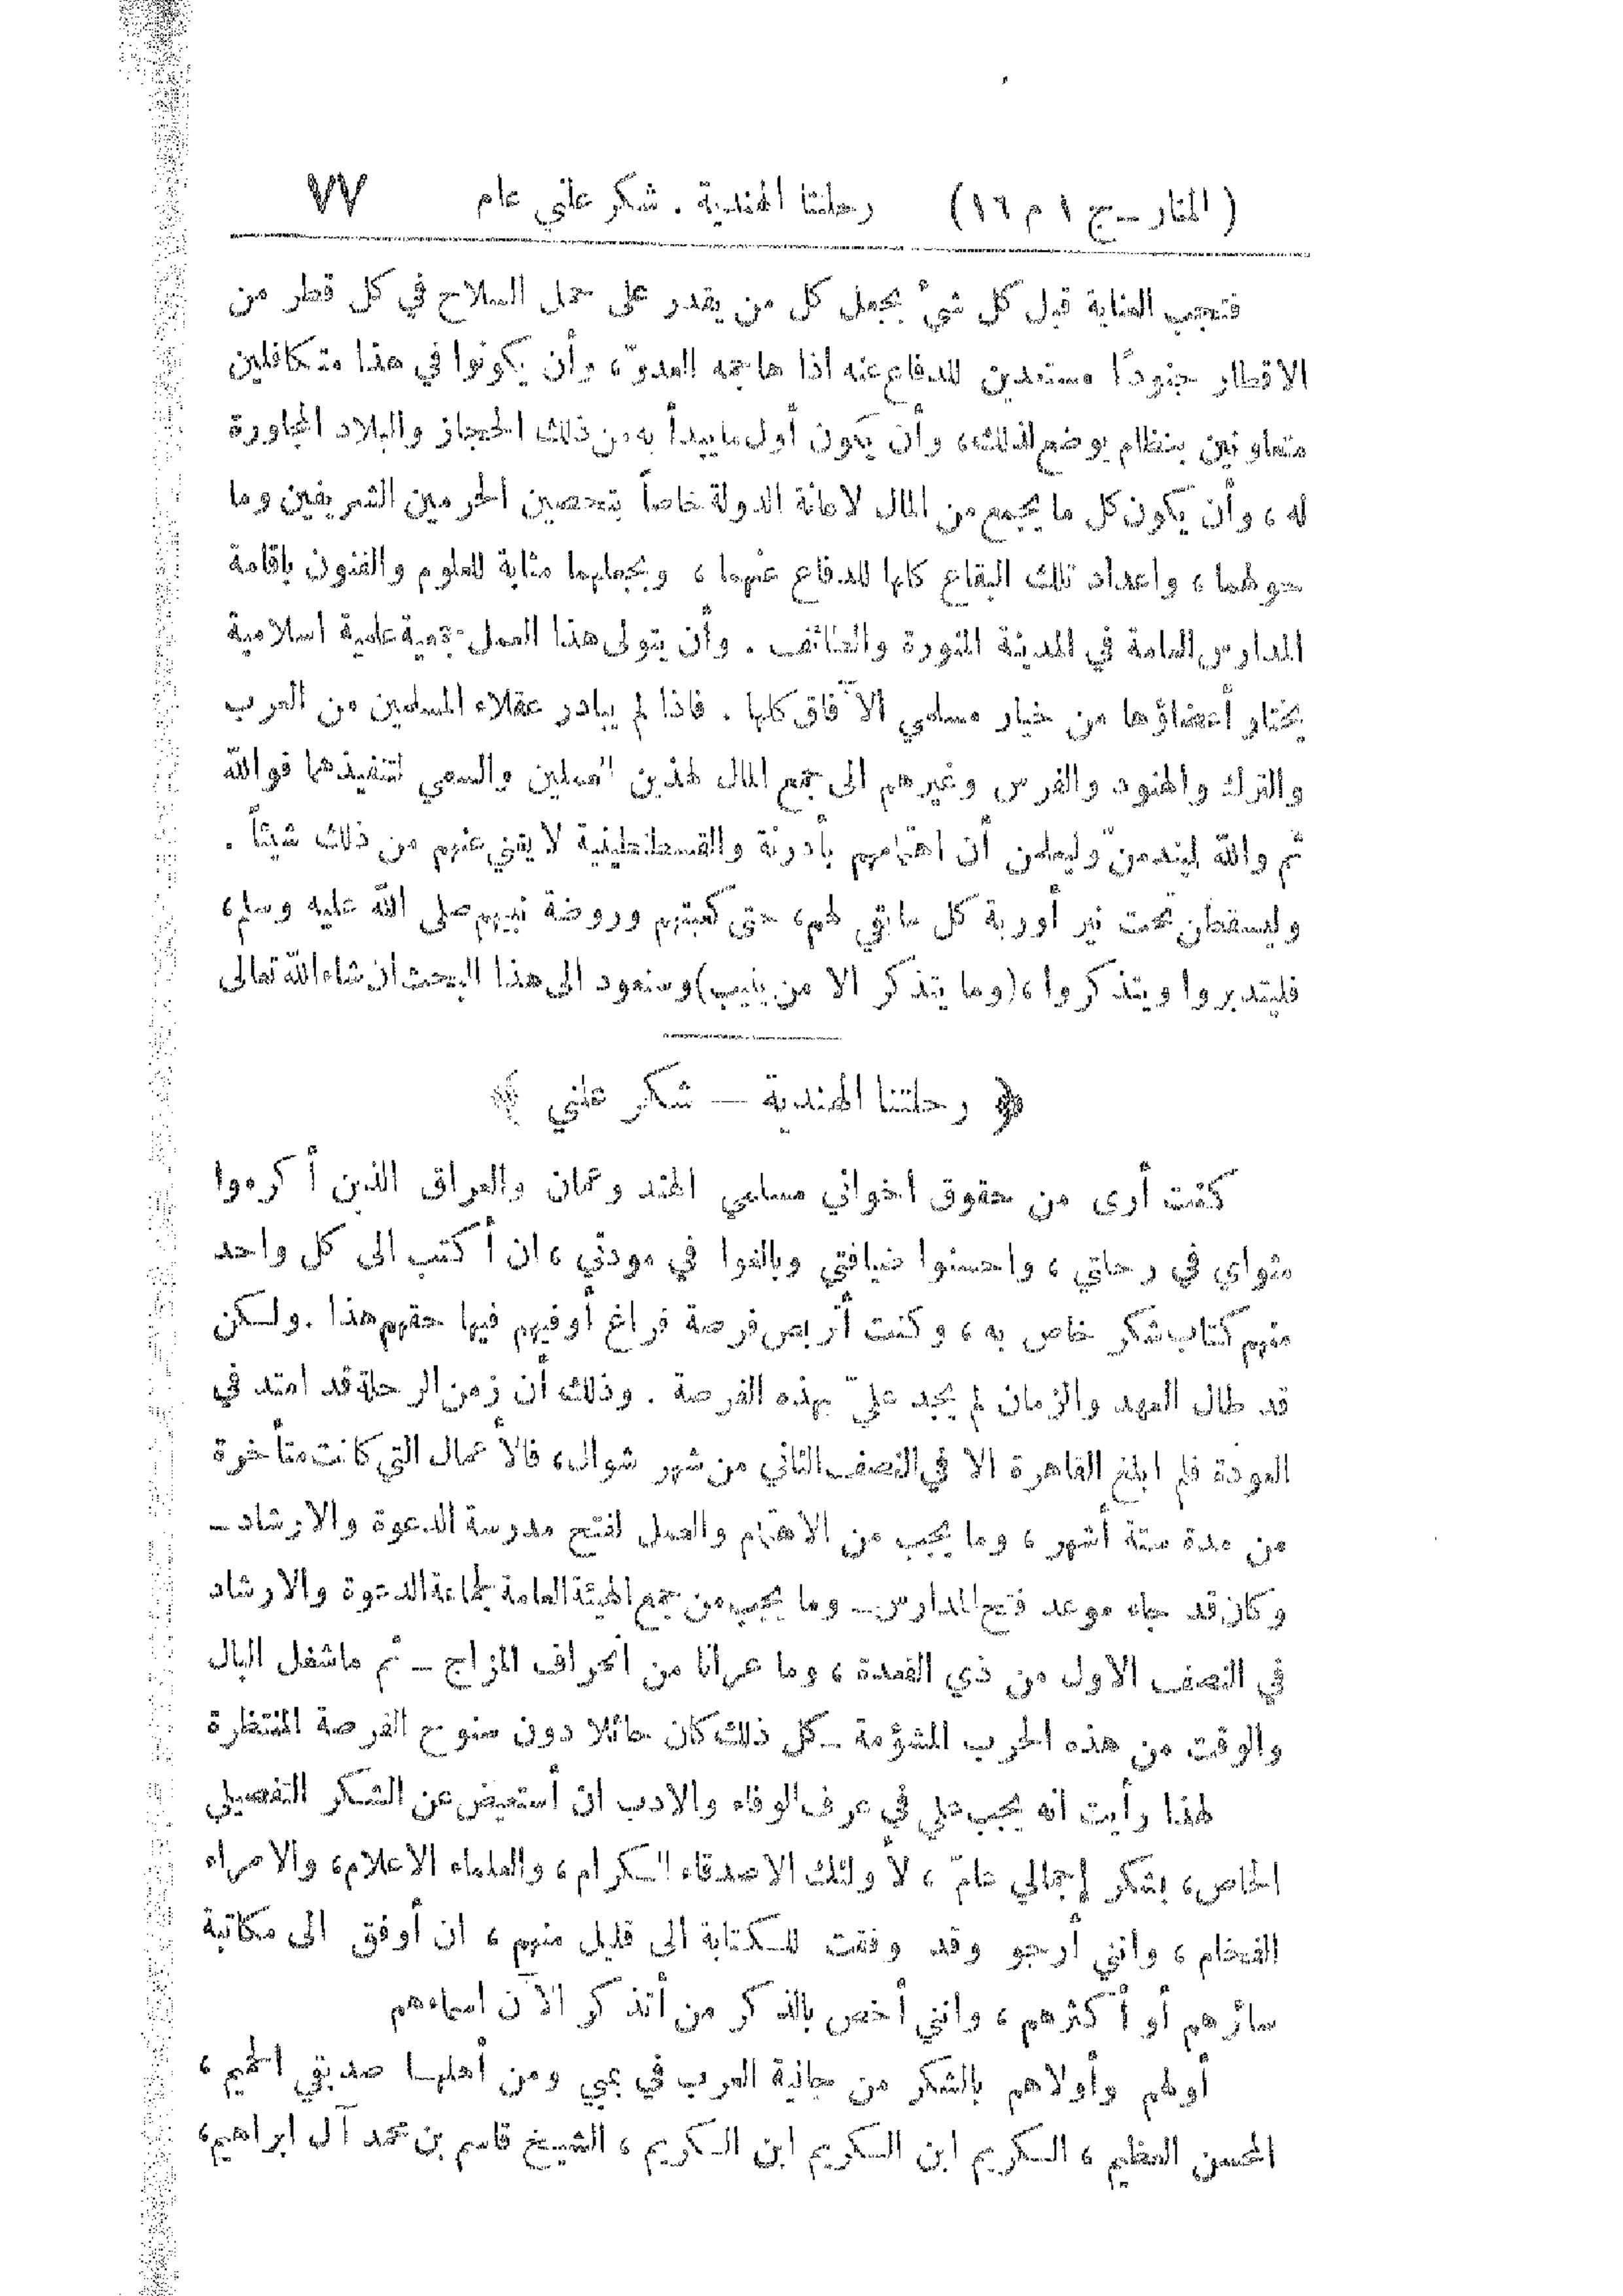 ( المنار ــ ج ١ م ١٦ ) رحلتنا الهندية . شكر علني عام ٧٧
فتجب العناية قبل كل شيء بجعل كل من يقدر على حمل السلاح في كل قطر من
الاقطار جنوداً مستعدين للدفاع عنه اذا هاجمه العدوّ ، وأن يكونوا في هذا متكافلين
متعاونين بنظام يوضع لذلك ، وأن يكون أول ما يبدأ به من ذلك الحجاز والبلاد المجاورة
له ، وأن يكون كل ما يجمع من المال لاعانة الدولة خاصاً بتحصين الحرمين الشريفين وما
حولهما ، واعداد تلك البقاع كلها للدفاع عنهما ، وبجعلهما مثابة للعلوم والفنون باقامة
المدارس العامة في المدينة المنورة والطائف . وأن يتولى هذا العمل جمعية علمية اسلامية
يختار أعضاؤها من خيار مسلمي الآفاق كلها . فاذا لم يبادر عقلاء المسلمين من العرب
والترك والهنود والفرس وغيرهم الى جمع المال لهذين العملين والسعي لتنفيذهما فوالله
ثم والله ليندمنّ وليعلمن أن اهتمامهم بأدرنة والقسطنطينية لا يغني عنهم من ذلك شيئاً .
وليسقطن تحت نير أوربة كل ما بقي لهم ، حتى كعبتهم وروضة نبيهم صلى الله عليه وسلم ،
فليتدبروا ويتذكروا ، (وما يتذكر الا من ينيب) وسنعود الى هذا البحث ان شاء الله تعالى
﴿ رحلتنا الهندية — شكر علني ﴾
كنت أرى من حقوق اخواني مسلمي الهند وعمان والعراق الذين أكرموا
مثواي في رحلتي ، واحسنوا ضيافتي وبالغوا في مودتي ، ان أكتب الى كل واحد
منهم كتاب شكر خاص به ، وكنت أتربص فرصة فراغ أوفيهم فيها حقهم هذا . ولكن
قد طال العهد والزمان لم يجد عليّ بهذه الفرصة . وذلك أن زمن الرحلة قد امتد في
العودة فلم ابلغ القاهرة الا في النصف الثاني من شهر شوال ، فالأعمال التي كانت متأخرة
من مدة ستة أشهر ، وما يجب من الاهتمام والعمل لفتح مدرسة الدعوة والارشاد ــ
وكان قد جاء موعد فتح المدارس ــ وما يجب من جمع الهيئة العامة لجماعة الدعوة والارشاد
في النصف الاول من ذي القعدة ، وما عرانا من انحراف المزاج ــ ثم ما شغل البال
والوقت من هذه الحرب المشؤمة ــ كل ذلك كان حائلا دون سنوح الفرصة المنتظرة
لهذا رأيت انه يجب علي في عرف الوفاء والادب ان أستعيض عن الشكر التفصيلي
الخاص ، بشكر إجمالي عامّ ، لأولئك الاصدقاء الكرام ، والعلماء الاعلام ، والامراء
الفخام ، وانني أرجو وقد وفقت للكتابة الى قليل منهم ، ان أوفق الى مكاتبة
سائرهم أو أكثرهم ، وانني أخص بالذكر من أتذكر الآن اسماءهم
أولهم وأولاهم بالشكر من جالية العرب في بمبي ومن أهلها صديقي الحميم ،
المحسن العظيم ، الكريم ابن الكريم ابن الكريم ، الشيخ قاسم بن محمد آل ابراهيم ،